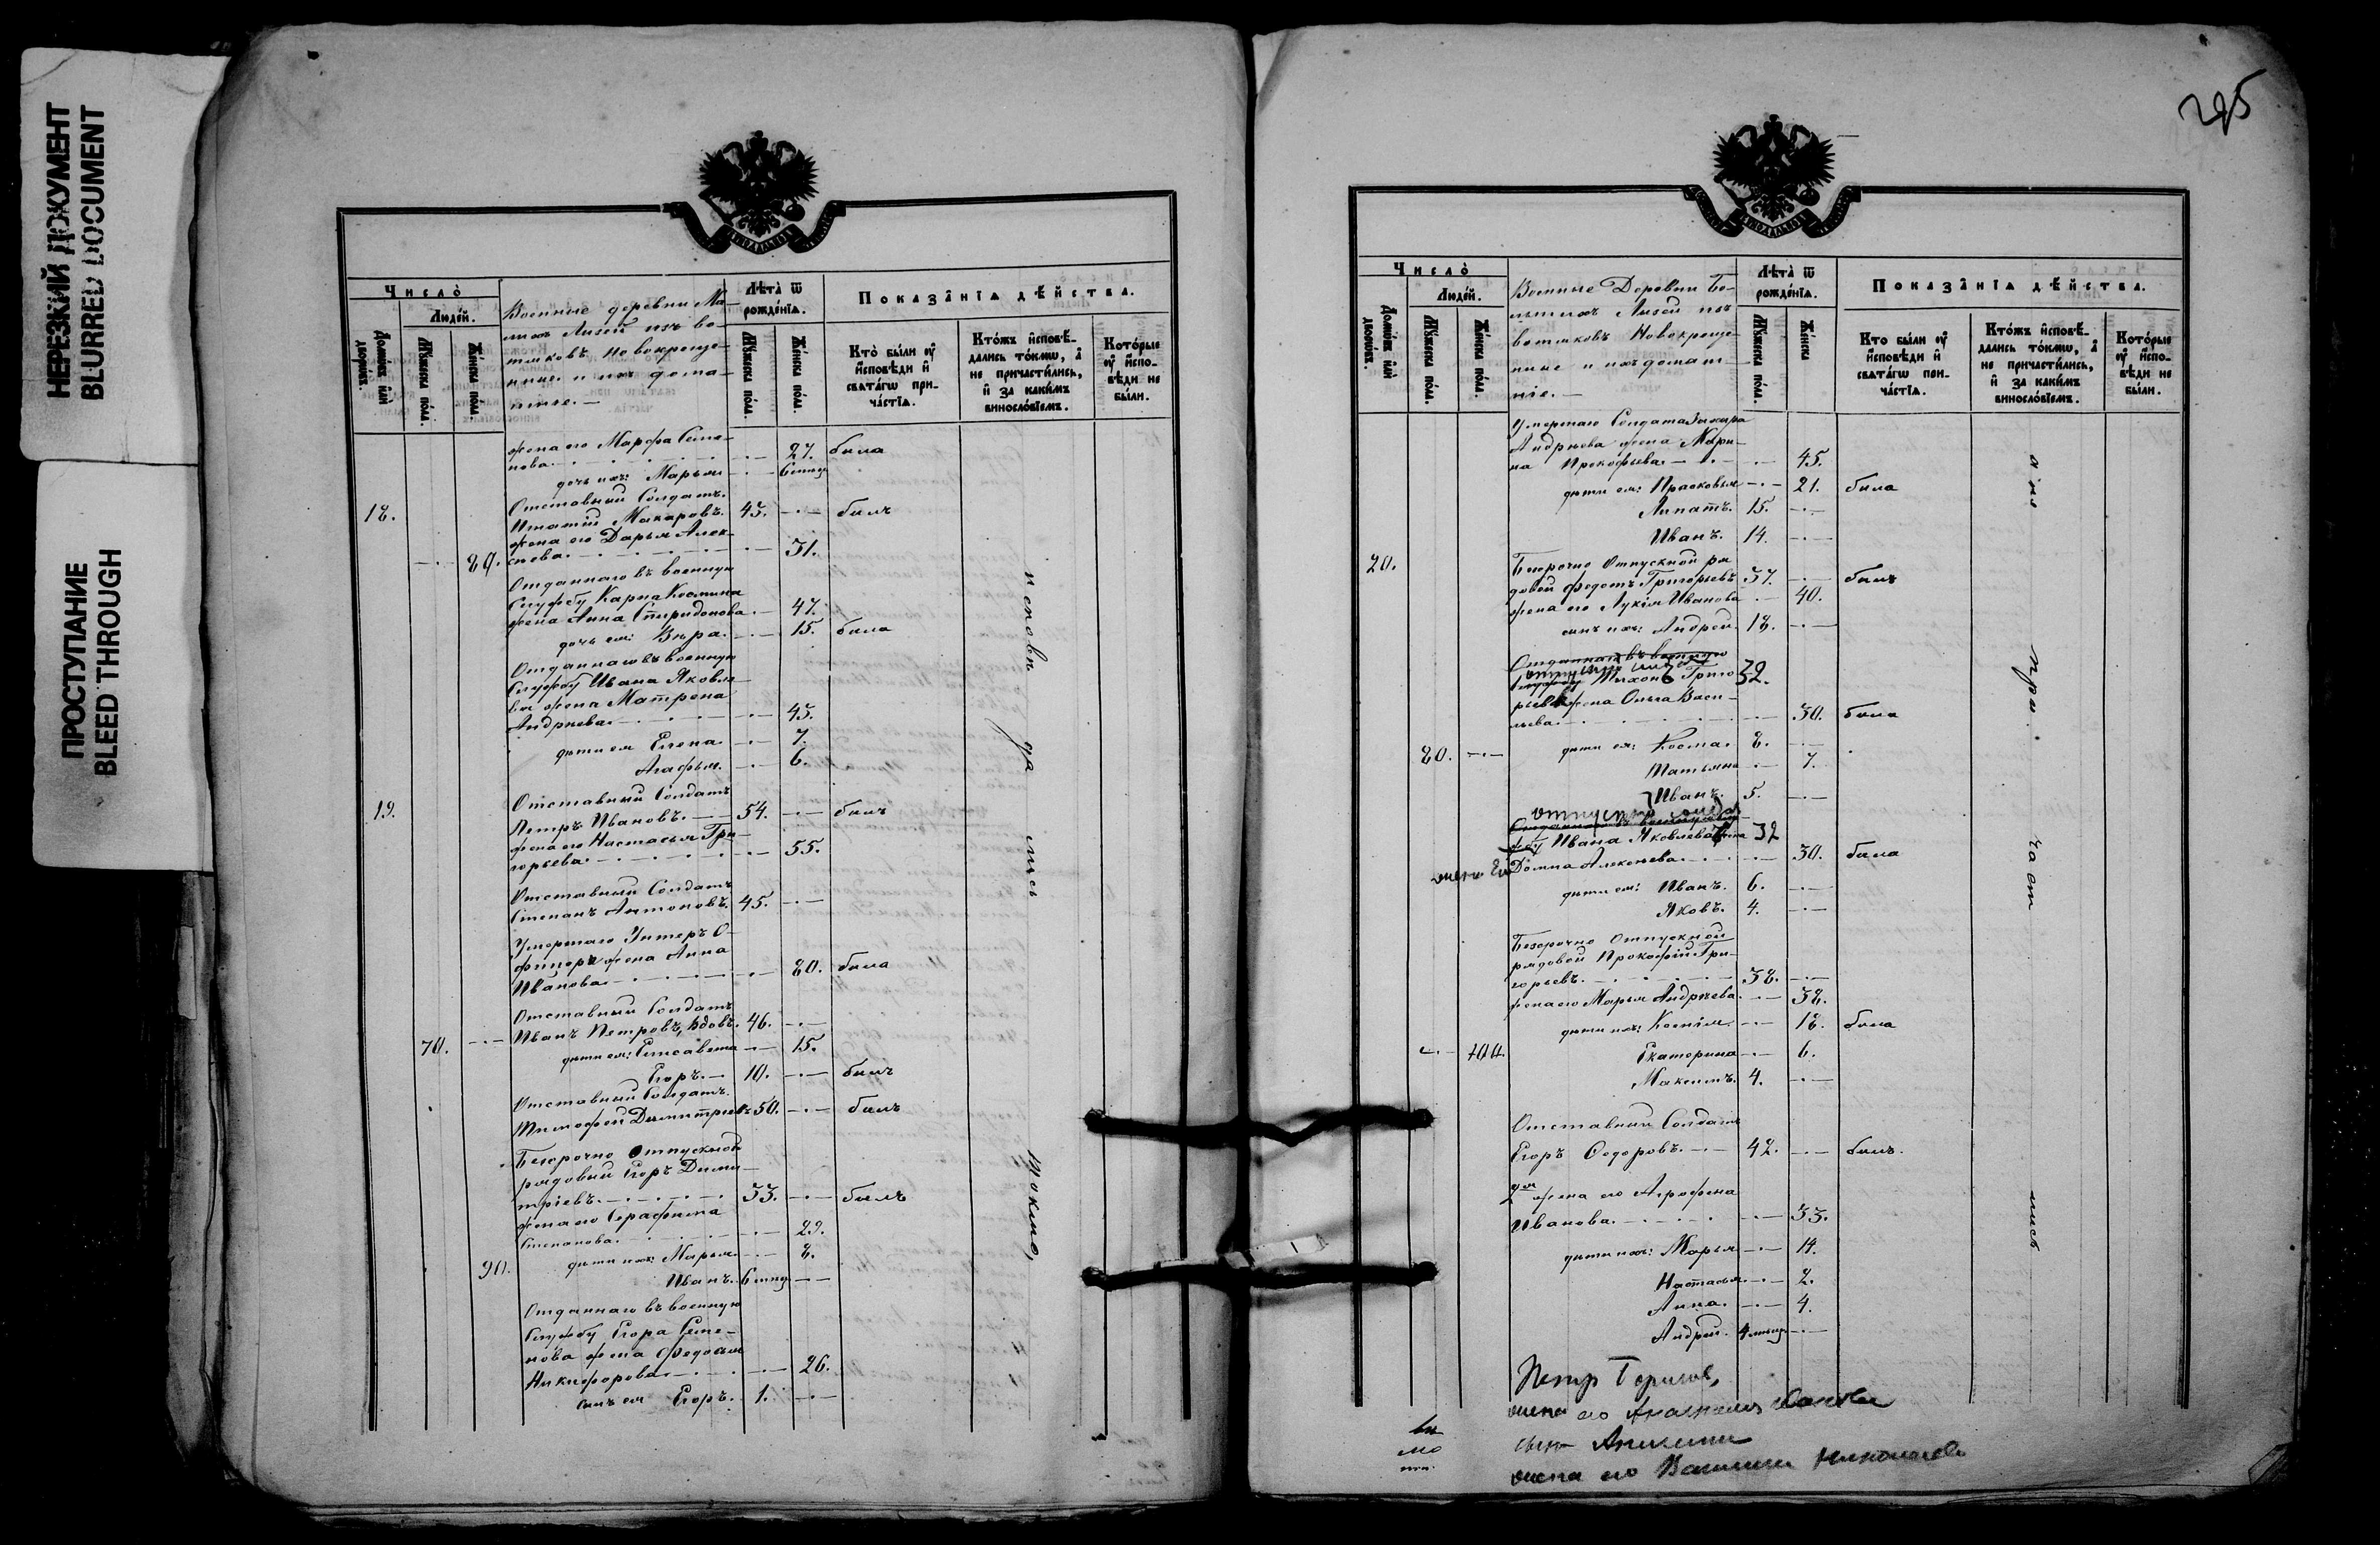 НЕРЕЗКИЙ ДОКУМЕНТ
BLURRED DOCUMENT
ПРОСТУПАНИЕ
BLEED THROUGH
Число̀
Людéй.
Домѡ́въ и҆лѝ дворѡ́въ.
Мꙋ́жеска по́ла.
Же́нска по́ла.
Военные деревни Ма-
лыхъ Лизей изъ во-
тяковъ новокреще-
нные и ихъ дома-
шніе. —
Лѣ́та ѿ рожде́нїѧ.
Мꙋ́жеска по́ла.
Же́нска по́ла.
Показа̑нїѧ дѣ́йства.
Кто̀ бы́ли ᲂу҆ и҆сповѣ́ди и҆ свѧта́гѡ прича́стїѧ.
Кто́жъ и҆сповѣ́дались то́кмѡ, а҆ не причасти́лись, и҆ за каки́мъ винословїемъ.
Кото́рые ᲂу҆ и҆сповѣ́ди не бы́ли.
жена его Марфа Семе-
нова. 27. была
дочь ихъ: Марья 6 мѣц
18. Отставный Солдатъ
Игнатій Макаровъ. 45. былъ
жена его Дарья Алек-
89. сѣева. 31.
Отданнаго въ военную
службу Карпа Космина
жена Анна Спиридонова 47.
дочь ея: Вѣра. 15. была
Отданнаго въ военную
службу Ивана Яковле-
ва жена Матрена
Андреева. 45.
дѣти ея Елена. 7.
Агафья. 6.
19. Отставный Солдатъ
Петръ Ивановъ. 54. былъ
жена его Настасья Гри-
горьева. 55.
Отставный Солдатъ
Степанъ Антоновъ. 45.
Умершаго Унтеръ О-
фицера жена Анна
Иванова. 80. была
Отставный Солдатъ
70. Иванъ Петровъ, вдовъ. 46.
дѣти его: Елисавета 15.
Егоръ. 10. былъ
Отставный Солдатъ.
Тимофей Димитріевъ 50. былъ
Безсрочно отпускной
рядовый Егоръ Дими-
тріевъ. 33. былъ
жена его Серафима
Степанова. 29.
90. дѣти ихъ: Марья. 8.
Иванъ. 6 мѣц
Отданнаго въ военную
службу Егора Семе-
нова жена Федосья
Никифорова. 26.
сынъ ея Егоръ. 1.
исповѣ да лись токмо,
Число̀
Людéй.
Домѡ́въ и҆лѝ дворѡ́въ.
Мꙋ́жеска по́ла.
Же́нска по́ла.
Военные Деревни Бо-
льшихъ Лизей изъ
вотяковъ Новокреще-
нные и ихъ домаш-
ніе. —
Лѣ́та ѿ рожде́нїѧ.
Мꙋ́жеска по́ла.
Же́нска по́ла.
Показа̑нїѧ дѣ́йства.
Кто бы́ли ᲂу҆ и҆сповѣ́ди и҆ свѧта́гѡ прича́стїѧ.
Кто́жъ и҆сповѣ́дались то́кмѡ, а҆ не причасти́лись, и҆ за каки́мъ винословїемъ.
Кото́рые ᲂу҆ и҆сповѣ́ди не бы́ли.
Умершаго Солдата Захара
Андреева жена Мари-
на Прокофьева 45.
дѣти ея: Прасковья 21. была
Ипатъ. 15.
Иванъ. 14.
20. Безсрочно Отпускной ря-
довой Федотъ Григорьевъ 37. былъ
жена его Лукія Иванова 40.
сынъ ихъ: Андрей. 18.
Отданнаго въ военную
службу Тихонъ Григо 32.
рьевъ жена Ольга Васи-
льева. 30. была
80. дѣти ея: Косма. 8.
Татьяна 7.
Иванъ. 5.
Ивана Яковлева 32
жена Ея Домна Алексѣева. 30. была
дѣти ея: Иванъ. 6.
Яковъ. 4.
Безсрочно Отпускной
рядовой Прокофій Гри-
горьевъ. 38.
жена его Марья Андреева. 38.
дѣти ихъ: Ксенія 18. была
100. Екатерина 6.
Максимъ. 4.
Отставный Солдатъ
Егоръ Сидоровъ. 42. былъ.
жена его Агрофена
Иванова. 33.
дѣти ихъ: Марья 14.
Настасья. 8.
Анна. 4.
Андрей. 4 мѣц
а не при част лись
Петр
жена его
сынъ
жена его